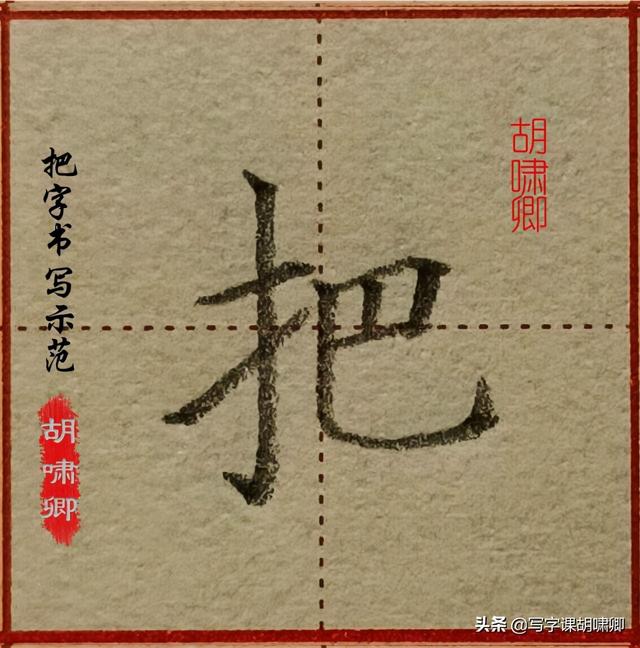 把字书写示范
胡啸卿
把
胡啸卿
头条 @写字课胡啸卿